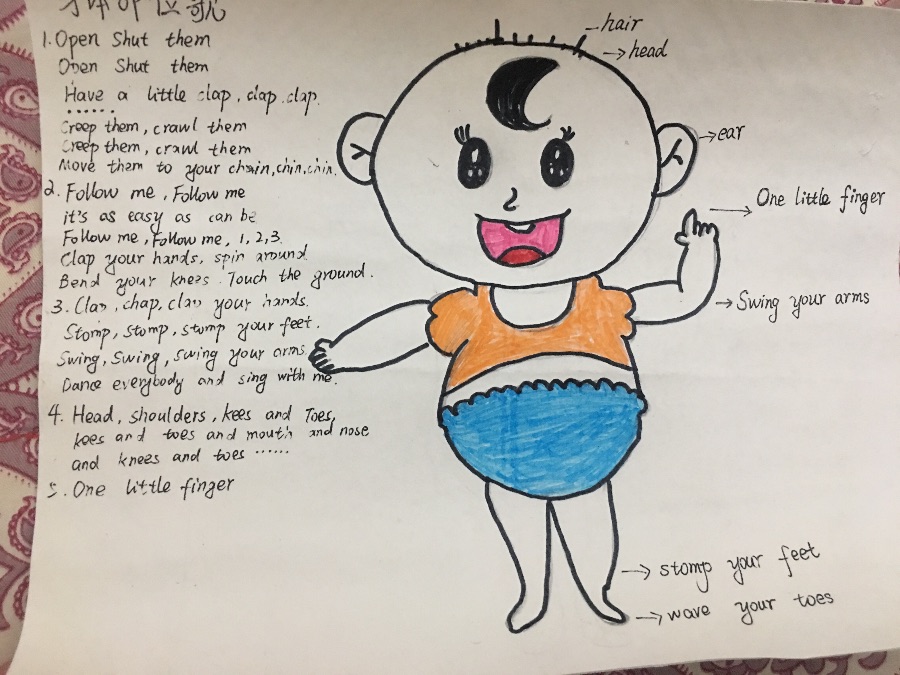 身体部位歌
1. Open Shut them
Open Shut them
Have a little clap, clap, clap.
......
Creep them, crawl them
Creep them, crawl them
Move them to your chain, chin, chin.
2. Follow me, Follow me
it's as easy as can be
Follow me, Follow me, 1, 2, 3.
Clap your hands, spin around.
Bend your knees. Touch the ground.
3. Clap, chap, clap your hands.
Stomp, stomp, stomp your feet.
Swing, swing, swing your arms.
Dance everybody and sing with me.
4. Head, shoulders, kees and Toes,
kees and toes and mouth and nose
and knees and toes ......
5. One little finger
hair
head
ear
One little finger
Swing your arms
stomp your feet
wave your toes